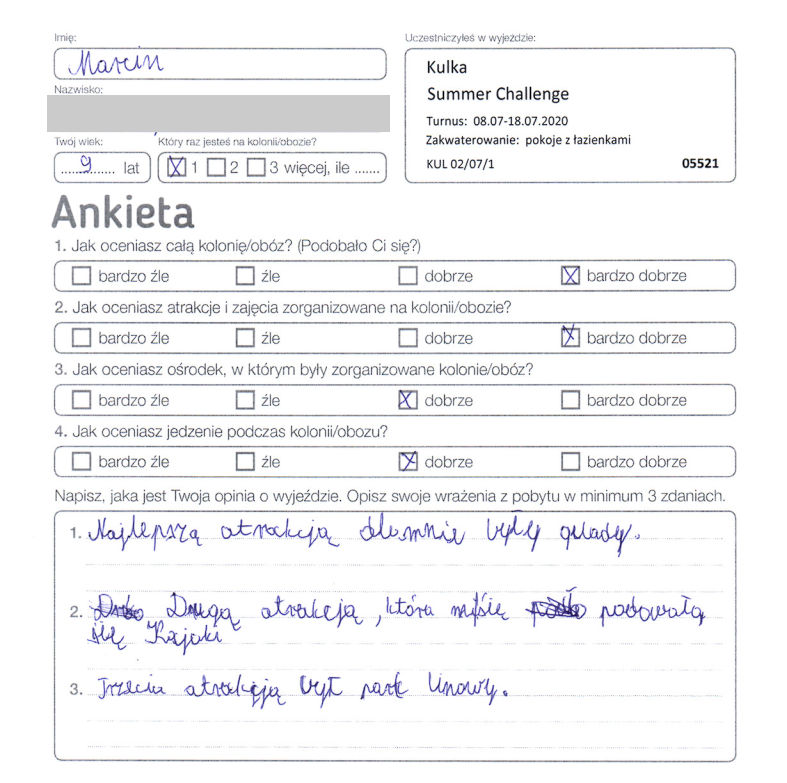 Imię:
Marcin
Nazwisko:
Twój wiek:
9 lat
Który raz jesteś na kolonii/obozie?
1 2 3 więcej, ile .......
Uczestniczyłeś w wyjeździe:
Kulka
Summer Challenge
Turnus: 08.07-18.07.2020
Zakwaterowanie: pokoje z łazienkami
KUL 02/07/1 05521
Ankieta
1. Jak oceniasz całą kolonię/obóz? (Podobało Ci się?)
bardzo źle źle dobrze bardzo dobrze
2. Jak oceniasz atrakcje i zajęcia zorganizowane na kolonii/obozie?
bardzo źle źle dobrze bardzo dobrze
3. Jak oceniasz ośrodek, w którym były zorganizowane kolonie/obóz?
bardzo źle źle dobrze bardzo dobrze
4. Jak oceniasz jedzenie podczas kolonii/obozu?
bardzo źle źle dobrze bardzo dobrze
Napisz, jaka jest Twoja opinia o wyjeździe. Opisz swoje wrażenia z pobytu w minimum 3 zdaniach.
1. Najlepszą atrakcją dlamnie były quady.
2. Drugą atrakcją, która mi podowała
się Kajaki
3. Trzecia atrakcją był park linowy.